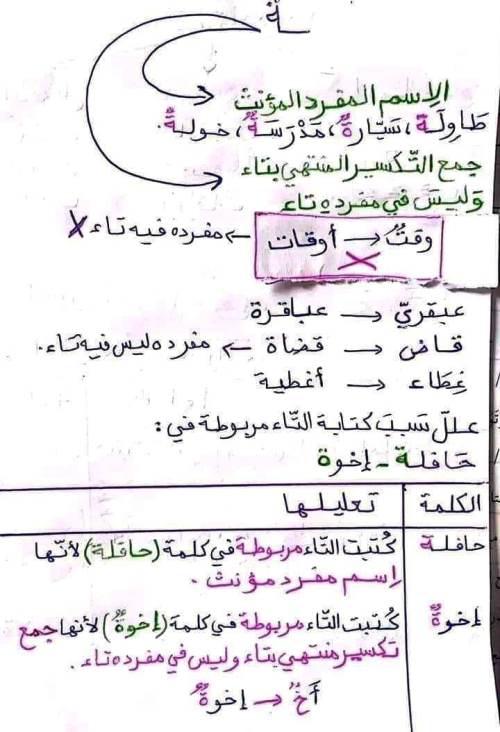 ـة
الاسم المفرد المؤنث
طَاوِلَة، سَيّارةٌ، مَدْرَسَةٌ، خولةُ.
جمع التّكسير المنتهي بتاء
وَليسَ في مفرده تاء
وقتٌ ← أوقات ← مفرده فيه تاء X
X
عبقريّ ← عباقرة
قاضٍ ← قضاة ← مفرده ليس فيه تاء.
غِطَاء ← أغطية
علل سَببَ كتابة التّاء مربوطة في:
حَافلة - إخوة
الكلمة تعليلها
حافلة كُتبت التّاء مربوطة في كلمة (حافلة) لأنّها
اِسم مفرد مؤنث.
إخوةٌ كُتبت التّاء مربوطة في كلمة (إخوةٌ) لأنها جمع
تكسير منتهي بتاء وليس في مفرده تاء.
أَخٌ ← إخوةٌ